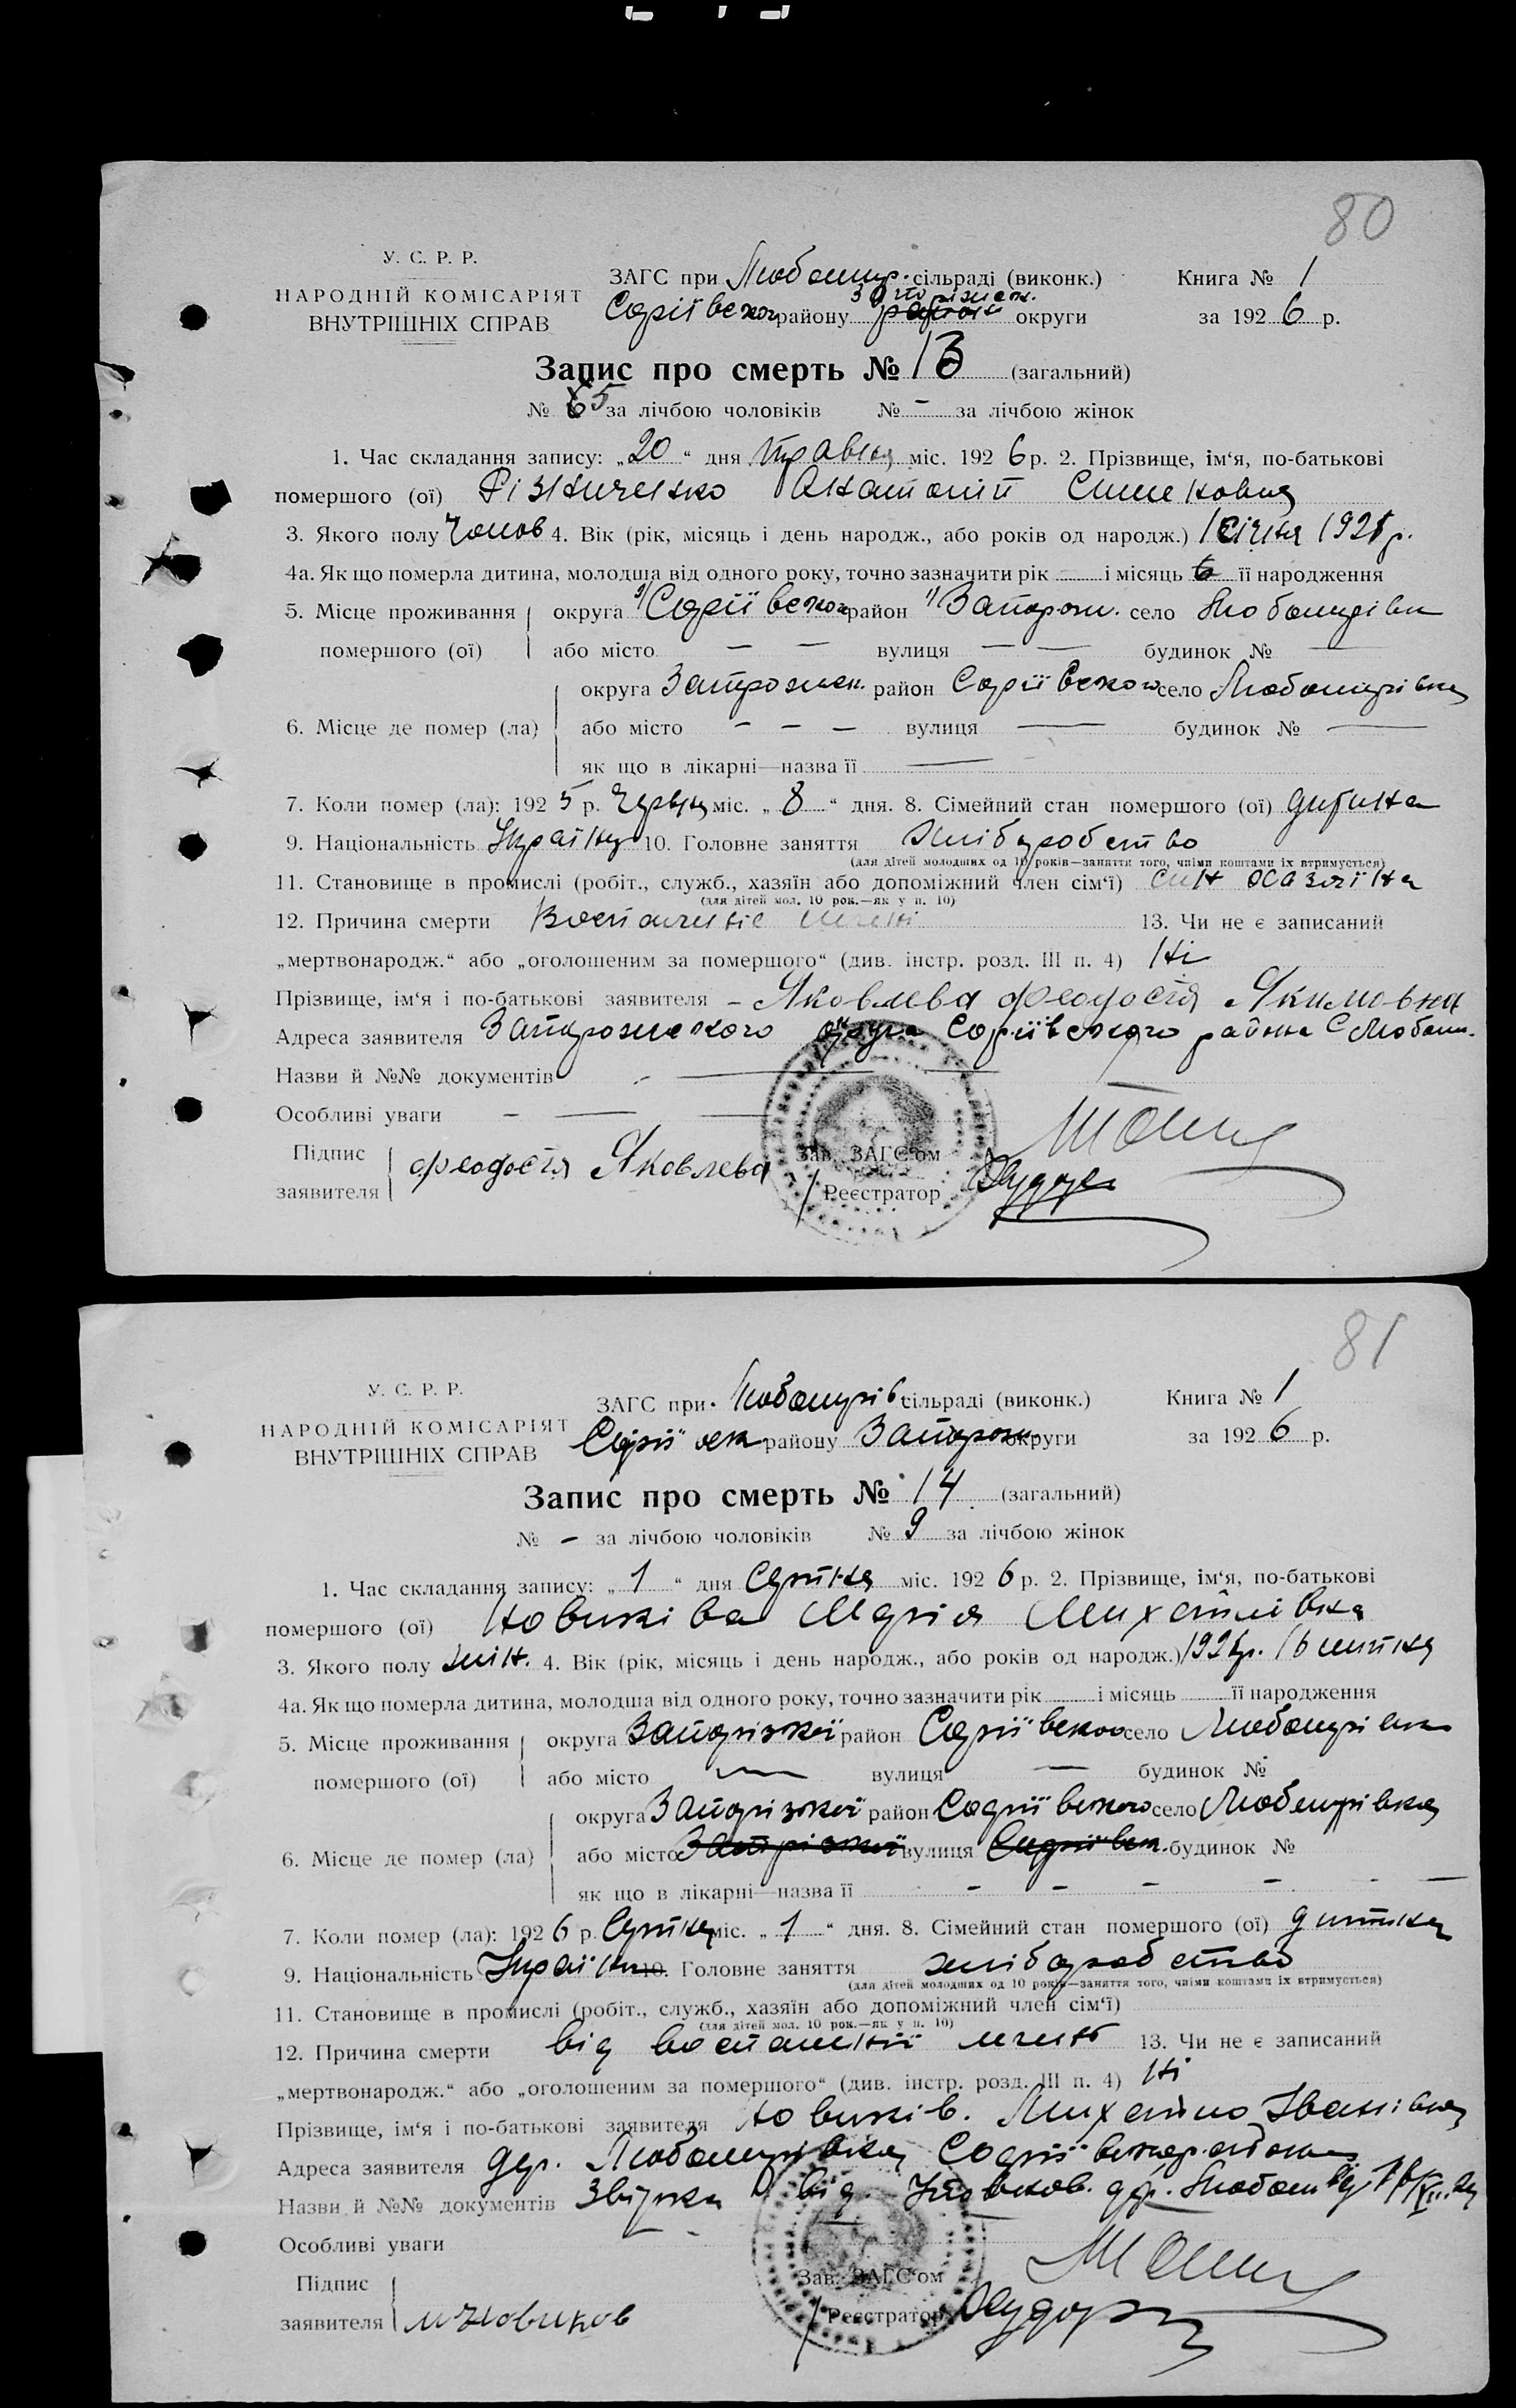 80
У. С. Р. Р.
НАРОДНІЙ КОМІСАРІЯТ
ВНУТРІШНІХ СПРАВ
ЗАГС при Любомир. сільраді (виконк.)
району округи
Книга № 1
за 192 6 р.
Запис про смерть № 13 (загальний)
№ 5 за лічбою чоловіків № - за лічбою жінок
1. Час складання запису: „20“ дня травня міс. 192 6 р. 2. Прізвище, ім‘я, по-батькові
помершого (ої) Різниченко Анатолій
3. Якого полу Чолов 4. Вік (рік, місяць і день народж., або років од народж.) 1 січня
4а. Як що померла дитина, молодша від одного року, точно зазначити рік і місяць 6 її народження
5. Місце проживання округа район Запорож. село
помершого (ої) або місто — — вулиця — — будинок № —
округа Запорожск. район село Любомирівка
6. Місце де помер (ла) або місто - - - вулиця — будинок № —
як що в лікарні—назва її —
7. Коли помер (ла): 192 5 р. Червня міс. „ 8 “ дня. 8. Сімейний стан помершого (ої) дитина
9. Національність 10. Головне заняття хліборобство
(для дітей молодших од 10 років—заняття того, чиїми коштами їх втримується)
11. Становище в промислі (робіт., служб., хазяїн або допоміжний член сім‘ї) син хазяїна
(для дітей мол. 10 рок.—як у п. 10)
12. Причина смерти 13. Чи не є записаний
„мертвонародж.“ або „оголошеним за помершого“ (див. інстр. розд. III п. 4) Ні
Прізвище, ім‘я і по-батькові заявителя - Яковлева Феодосія Якимовна
Адреса заявителя Запорожского округа района С Любом.
Назви й №№ документів —
Особливі уваги - — —
Підпис
заявителя Феодосія Яковлева
Зав. ЗАГС‘ом
Реєстратор
81
У. С. Р. Р.
НАРОДНІЙ КОМІСАРІЯТ
ВНУТРІШНІХ СПРАВ
ЗАГС при Любомирів сільраді (виконк.)
району Запорож. округи
Книга № 1
за 192 6 р.
Запис про смерть № 14 (загальний)
№ - за лічбою чоловіків № 9 за лічбою жінок
1. Час складання запису: „ 1 “ дня Серпня міс. 192 6 р. 2. Прізвище, ім‘я, по-батькові
помершого (ої) Новиківа Марія Михайлівна
3. Якого полу жін. 4. Вік (рік, місяць і день народж., або років од народж.)
4а. Як що померла дитина, молодша від одного року, точно зазначити рік і місяць її народження
5. Місце проживання округа Запорізкої район село Любомирівка
помершого (ої) або місто — вулиця — будинок №
округа Запорізкої район село Любомирівка
6. Місце де помер (ла) або місто вулиця будинок №
як що в лікарні—назва її - - - - - —
7. Коли помер (ла): 192 6 р. Серпня міс. „ 1 “ дня. 8. Сімейний стан помершого (ої) дитина
9. Національність 10. Головне заняття хліборобство
(для дітей молодших од 10 років—заняття того, чиїми коштами їх втримується)
11. Становище в промислі (робіт., служб., хазяїн або допоміжний член сім‘ї)
(для дітей мол. 10 рок.—як у п. 10)
12. Причина смерти від 13. Чи не є записаний
„мертвонародж.“ або „оголошеним за помершого“ (див. інстр. розд. III п. 4) Ні
Прізвище, ім‘я і по-батькові заявителя Новиків. Михайло Іванівич
Адреса заявителя дер. Любомирівка
Назви й №№ документів від.
Особливі уваги
Підпис
заявителя М Новиков
Зав. ЗАГС‘ом
Реєстратор